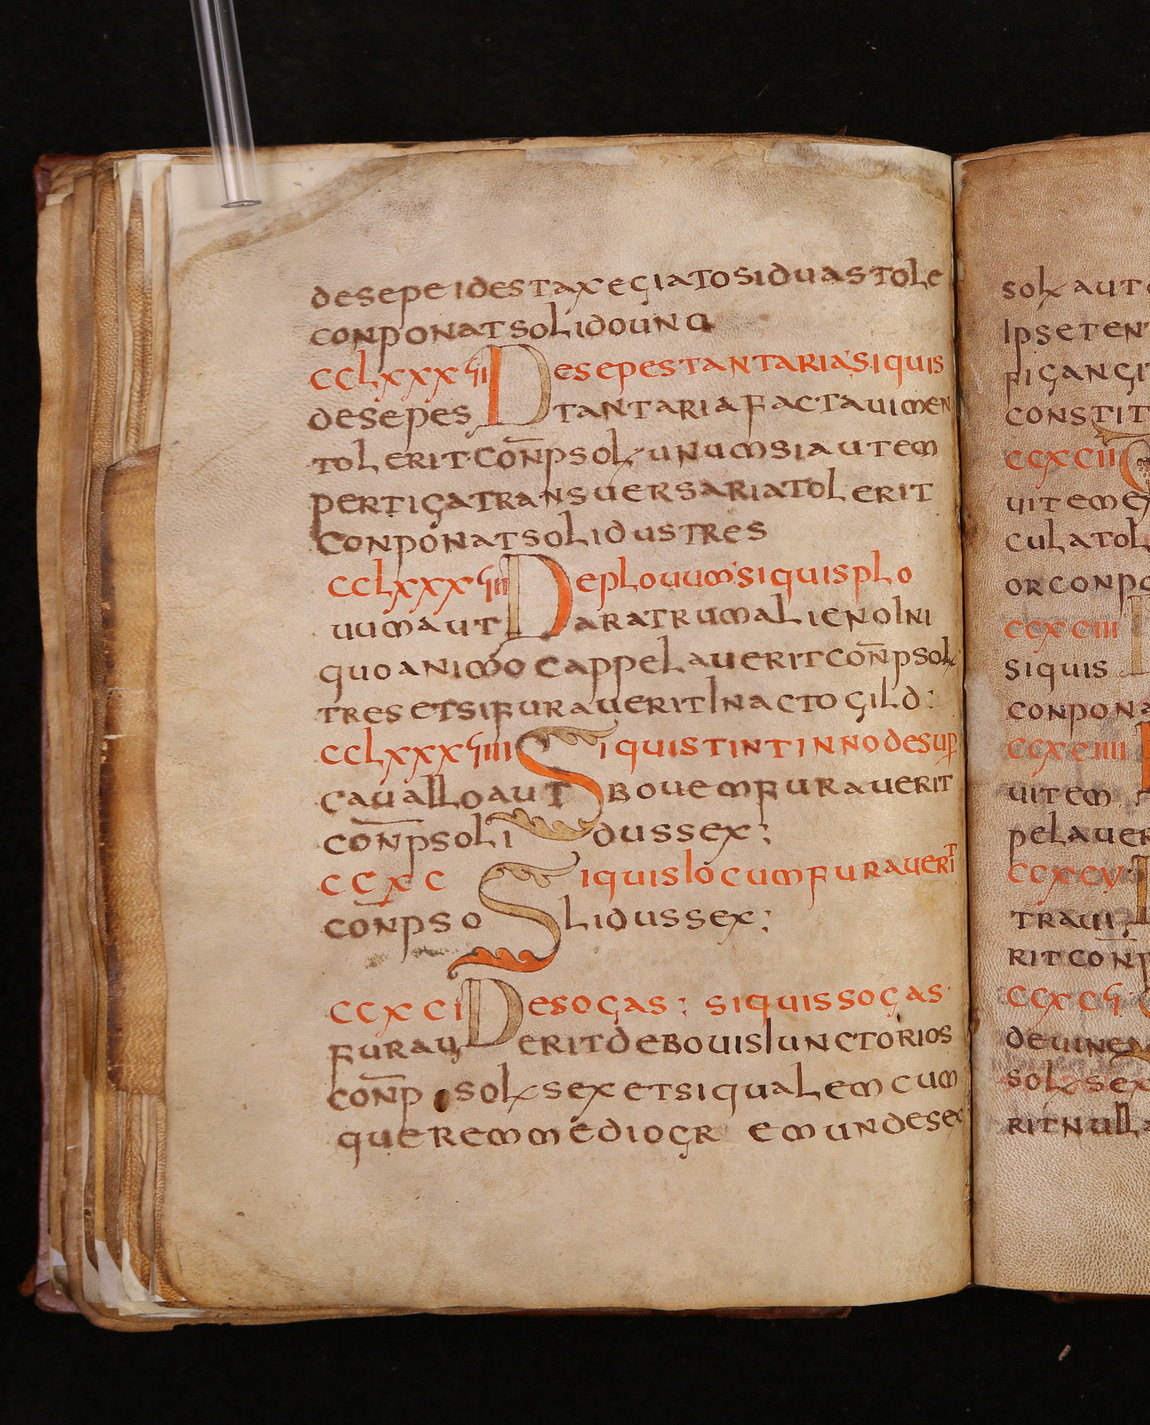 desepe idestaxegiato siduas tole
conponat solido una
cclxxxvii Desepe stantaria si quis
de sepe stantaria facta uimen
tolerit con̄p solx unum si autem
pertiga transuersaria tolerit
conponat solidus tres
cclxxxviii De plouum si quis plo
uum aut aratrum alieno ini
quo animo cappelauerit con̄p solx
tres et si furauerit in actogild:
cclxxxviiii Si quis tintinno de sup
cauallo aut boue m furauerit
con̄p soli dus sex;
ccxc Si quis iocum furauerit
con̄p so lidus sex;
ccxci De sogas; si quis sogas
furau erit de bouis iunctorios
con̄p solx sex et si qualemcum
que rem mediogr emundese
solx aut
ipse ten
figangi
constit
ccxcii
uitem e
cula tol
or conp
ccxciii
si quis
conpona
ccxciiii
uitem
pelauer
ccxcv
traui
rit con̄p
ccxcvi
de uine
solx sex
rit nulla